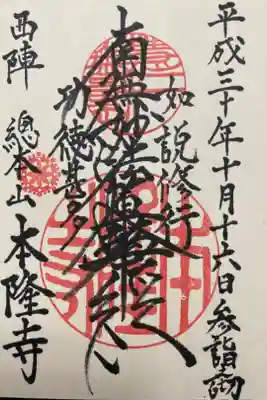 平成三十年十月十六日参詣
如説修行
南無妙法蓮華経
功徳甚多
西陣 總本山 本隆寺